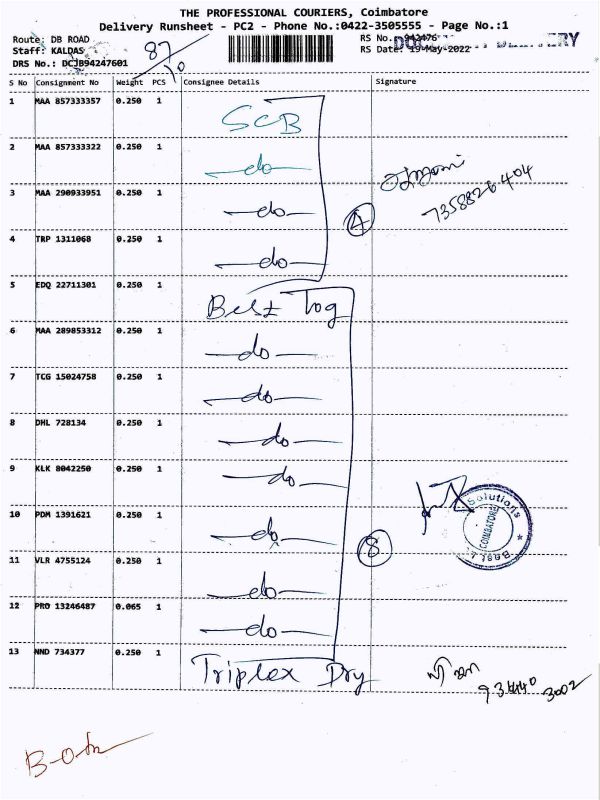 THE PROFESSIONAL COURIERS, Coimbatore
Delivery Runsheet - PC2 - Phone No.:0422-3505555 - Page No.:1
Route: DB ROAD
Staff: KALDAS
DRS No.: DCJB94247601
87
10
RS No.
RS Date: 19-May-2022
S No Consignment No Weight PCS Consignee Details Signature
1 MAA 857333357 0.250 1 SCB
2 MAA 857333322 0.250 1 -do-
3 MAA 290933951 0.250 1 -do-
4 TRP 1311068 0.250 1 -do-
4
7358826404
5 EDQ 22711301 0.250 1 Best Tog
6 MAA 289853312 0.250 1 -do-
7 TCG 15024758 0.250 1 -do-
8 DHL 728134 0.250 1 -do-
9 KLK 8042250 0.250 1 -do-
10 PDM 1391621 0.250 1 -do-
8
Solutions
COIMBATORE
11 VLR 4755124 0.250 1 -do-
12 PRO 13246487 0.065 1 -do-
13 NND 734377 0.250 1 Triplex Dry